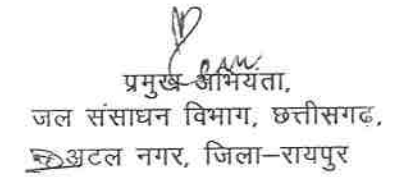 प्रमुख अभियंता,
जल संसाधन विभाग, छत्तीसगढ़,
अटल नगर, जिला–रायपुर